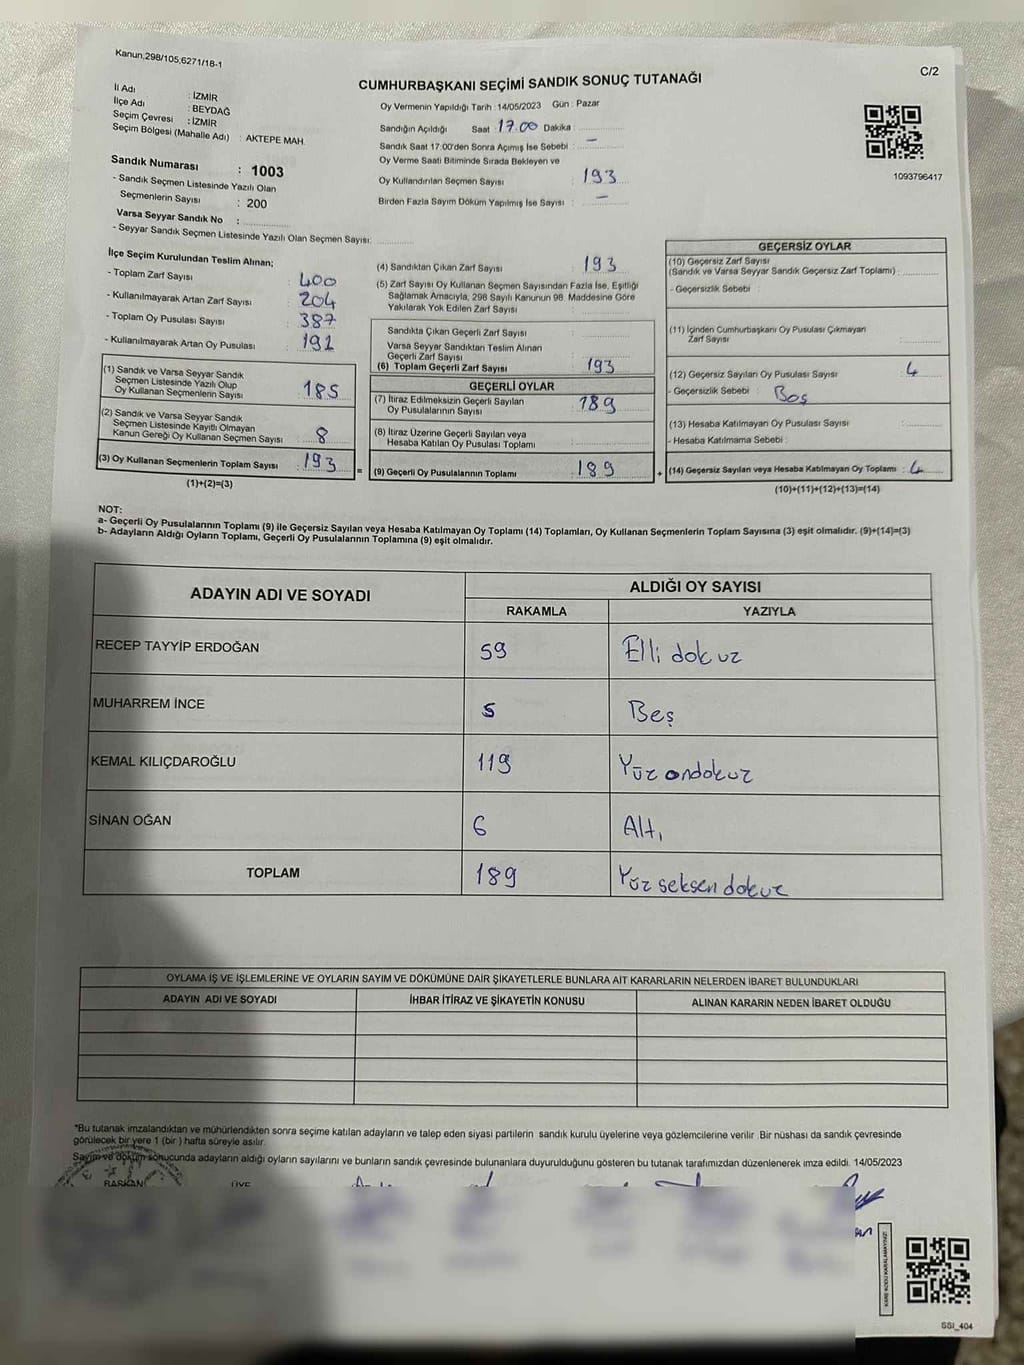 Kanun,298/105,6271/18-1
C/2
CUMHURBAŞKANI SEÇİMİ SANDIK SONUÇ TUTANAĞI
İl Adı : İZMİR
İlçe Adı : BEYDAĞ
Seçim Çevresi : İZMİR
Seçim Bölgesi (Mahalle Adı) : AKTEPE MAH.
Sandık Numarası : 1003
- Sandık Seçmen Listesinde Yazılı Olan
Seçmenlerin Sayısı : 200
Varsa Seyyar Sandık No :
- Seyyar Sandık Seçmen Listesinde Yazılı Olan Seçmen Sayısı:
Oy Vermenin Yapıldığı Tarih : 14/05/2023 Gün : Pazar
Sandığın Açıldığı Saat : 17.00 Dakika :
Sandık Saat 17:00'den Sonra Açımış İse Sebebi : –
Oy Verme Saati Bitiminde Sırada Bekleyen ve
Oy Kullandırılan Seçmen Sayısı : 193
Birden Fazla Sayım Döküm Yapılmış İse Sayısı : –
1093796417
İlçe Seçim Kurulundan Teslim Alınan;
- Toplam Zarf Sayısı : 400
- Kullanılmayarak Artan Zarf Sayısı : 204
- Toplam Oy Pusulası Sayısı : 387
- Kullanılmayarak Artan Oy Pusulası : 191
(1) Sandık ve Varsa Seyyar Sandık
Seçmen Listesinde Yazılı Olup
Oy Kullanan Seçmenlerin Sayısı : 185
(2) Sandık ve Varsa Seyyar Sandık
Seçmen Listesinde Kayıtlı Olmayan
Kanun Gereği Oy Kullanan Seçmen Sayısı : 8
(3) Oy Kullanan Seçmenlerin Toplam Sayısı : 193
(1)+(2)=(3)
(4) Sandıktan Çıkan Zarf Sayısı : 193
(5) Zarf Sayısı Oy Kullanan Seçmen Sayısından Fazla İse, Eşitliği
Sağlamak Amacıyla, 298 Sayılı Kanunun 98. Maddesine Göre
Yakılarak Yok Edilen Zarf Sayısı :
Sandıkta Çıkan Geçerli Zarf Sayısı :
Varsa Seyyar Sandıktan Teslim Alınan
Geçerli Zarf Sayısı :
(6) Toplam Geçerli Zarf Sayısı : 193
GEÇERLİ OYLAR
(7) İtiraz Edilmeksizin Geçerli Sayılan
Oy Pusulalarının Sayısı : 189
(8) İtiraz Üzerine Geçerli Sayılan veya
Hesaba Katılan Oy Pusulası Toplamı :
(9) Geçerli Oy Pusulalarının Toplamı : 189
=
+
GEÇERSİZ OYLAR
(10) Geçersiz Zarf Sayısı
(Sandık ve Varsa Seyyar Sandık Geçersiz Zarf Toplamı) :
- Geçersizlik Sebebi :
(11) İçinden Cumhurbaşkanı Oy Pusulası Çıkmayan
Zarf Sayısı :
(12) Geçersiz Sayılan Oy Pusulası Sayısı : 4
- Geçersizlik Sebebi : Boş
(13) Hesaba Katılmayan Oy Pusulası Sayısı :
- Hesaba Katılmama Sebebi :
(14) Geçersiz Sayılan veya Hesaba Katılmayan Oy Toplamı : 4
(10)+(11)+(12)+(13)=(14)
NOT:
a- Geçerli Oy Pusulalarının Toplamı (9) ile Geçersiz Sayılan veya Hesaba Katılmayan Oy Toplamı (14) Toplamları, Oy Kullanan Seçmenlerin Toplam Sayısına (3) eşit olmalıdır. (9)+(14)=(3)
b- Adayların Aldığı Oyların Toplamı, Geçerli Oy Pusulalarının Toplamına (9) eşit olmalıdır.
ADAYIN ADI VE SOYADI
ALDIĞI OY SAYISI
RAKAMLA YAZIYLA
RECEP TAYYİP ERDOĞAN 59 Elli dokuz
MUHARREM İNCE 5 Beş
KEMAL KILIÇDAROĞLU 119 Yüz ondokuz
SİNAN OĞAN 6 Altı
TOPLAM 189 Yüz seksen dokuz
OYLAMA İŞ VE İŞLEMLERİNE VE OYLARIN SAYIM VE DÖKÜMÜNE DAİR ŞİKAYETLERLE BUNLARA AİT KARARLARIN NELERDEN İBARET BULUNDUKLARI
ADAYIN ADI VE SOYADI İHBAR İTİRAZ VE ŞİKAYETİN KONUSU ALINAN KARARIN NEDEN İBARET OLDUĞU
*Bu tutanak imzalandıktan ve mühürlendikten sonra seçime katılan adayların ve talep eden siyasi partilerin sandık kurulu üyelerine veya gözlemcilerine verilir .Bir nüshası da sandık çevresinde
görülecek bir yere 1 (bir ) hafta süreyle asılır.
Sayım ve döküm sonucunda adayların aldığı oyların sayılarını ve bunların sandık çevresinde bulunanlara duyurulduğunu gösteren bu tutanak tarafımızdan düzenlenerek imza edildi. 14/05/2023
BAŞKAN ÜYE
KARE KODU KARALAMAYINIZ!
SSI_404